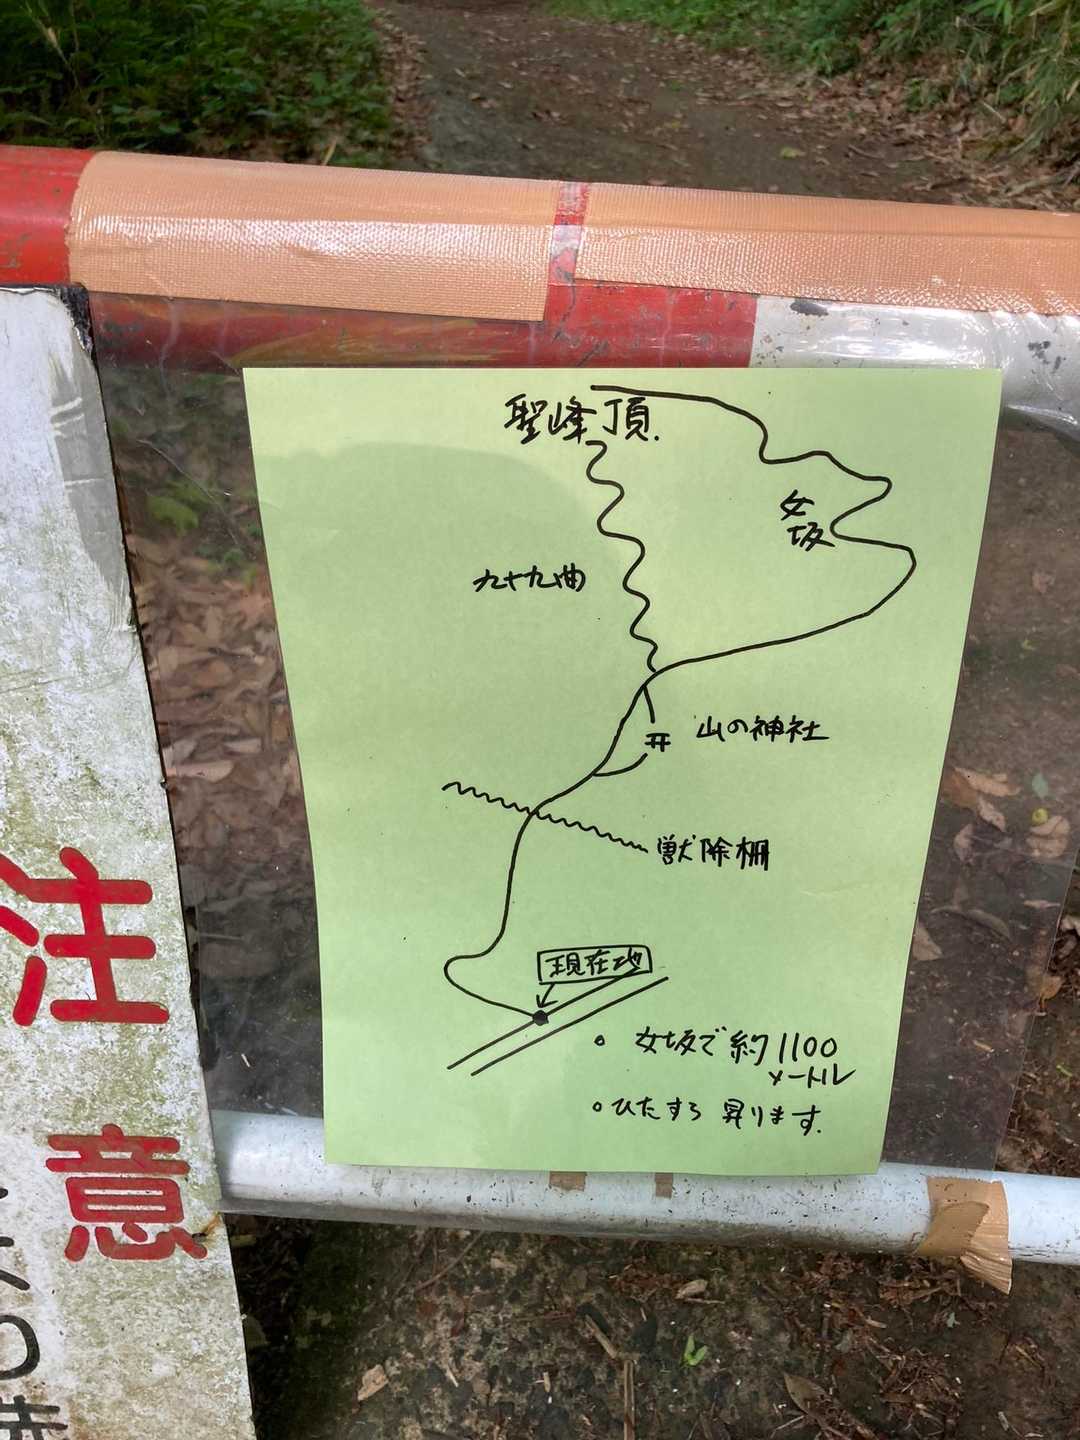 聖峰頂
女坂
九十九曲
山の神社
獣除柵
現在地
。女坂で約1100
メートル
。ひたすら昇ります.
注意